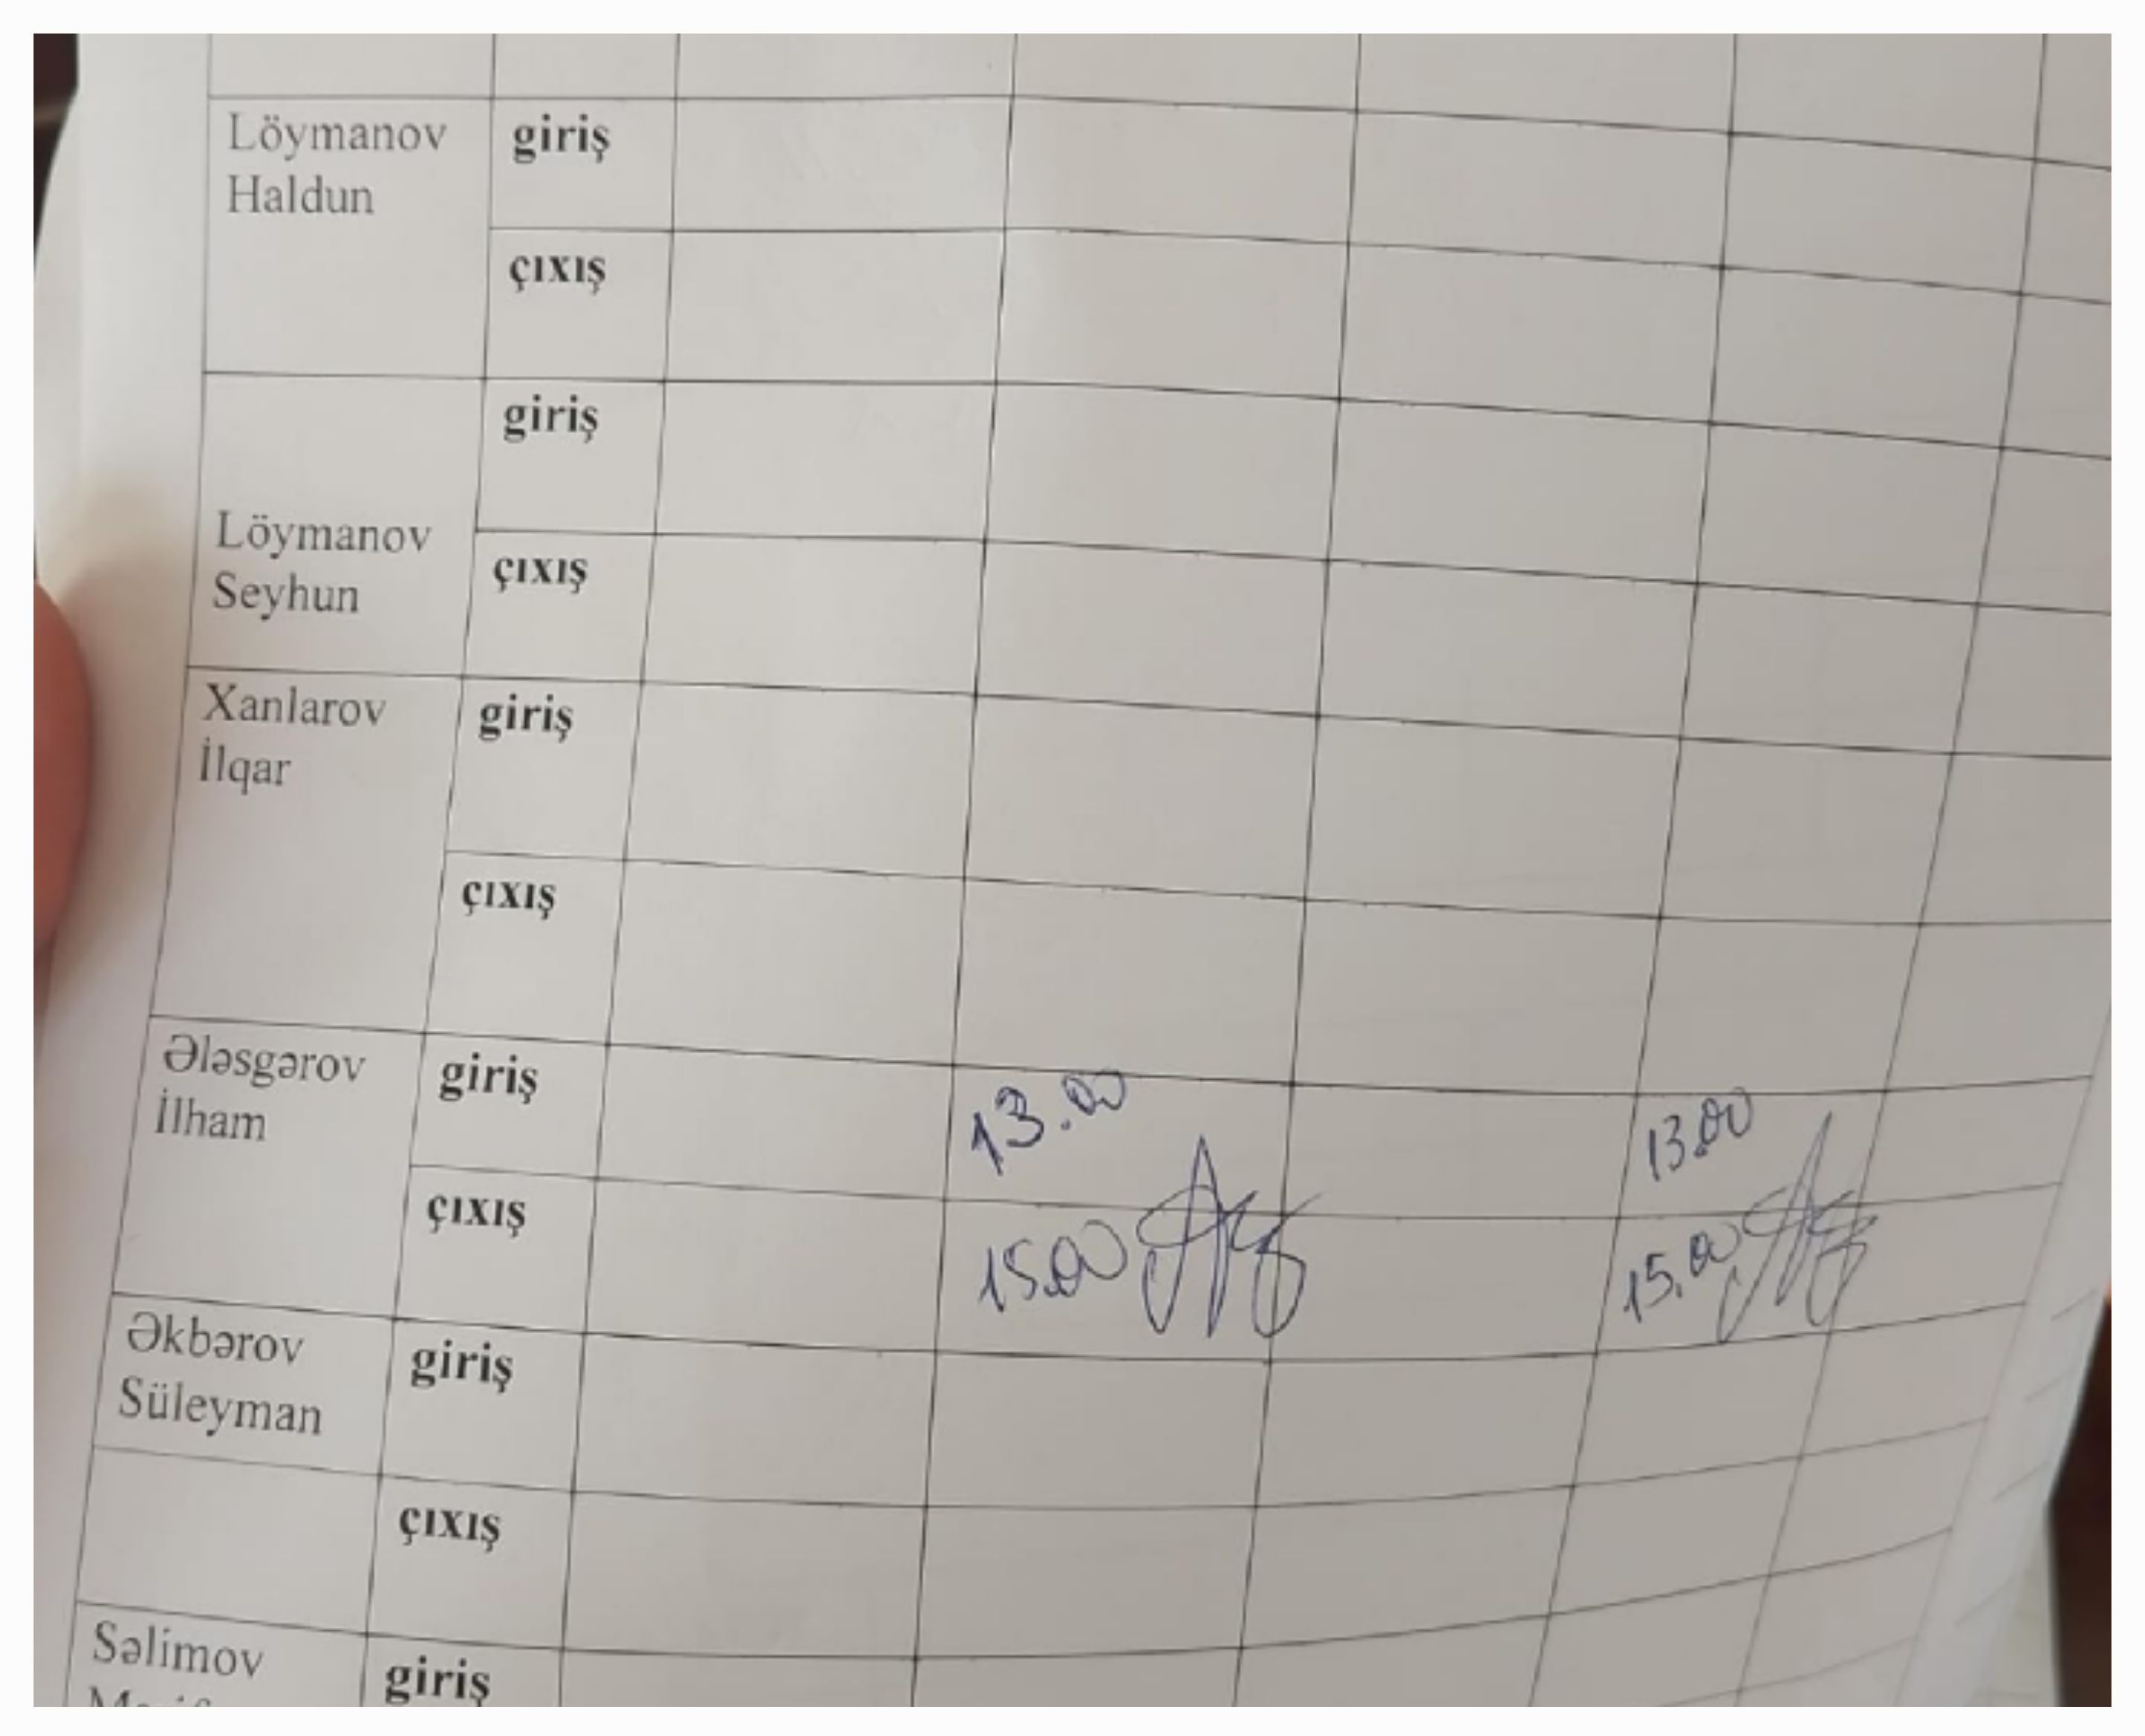 Löymanov giriş
Haldun
çıxış
giriş
Löymanov
Seyhun
çıxış
Xanlarov giriş
İlqar
çıxış
Ələsgərov giriş 13.00 13.00
İlham
çıxış 15.00 15.00
Əkbərov giriş
Süleyman
çıxış
Səlimov giriş